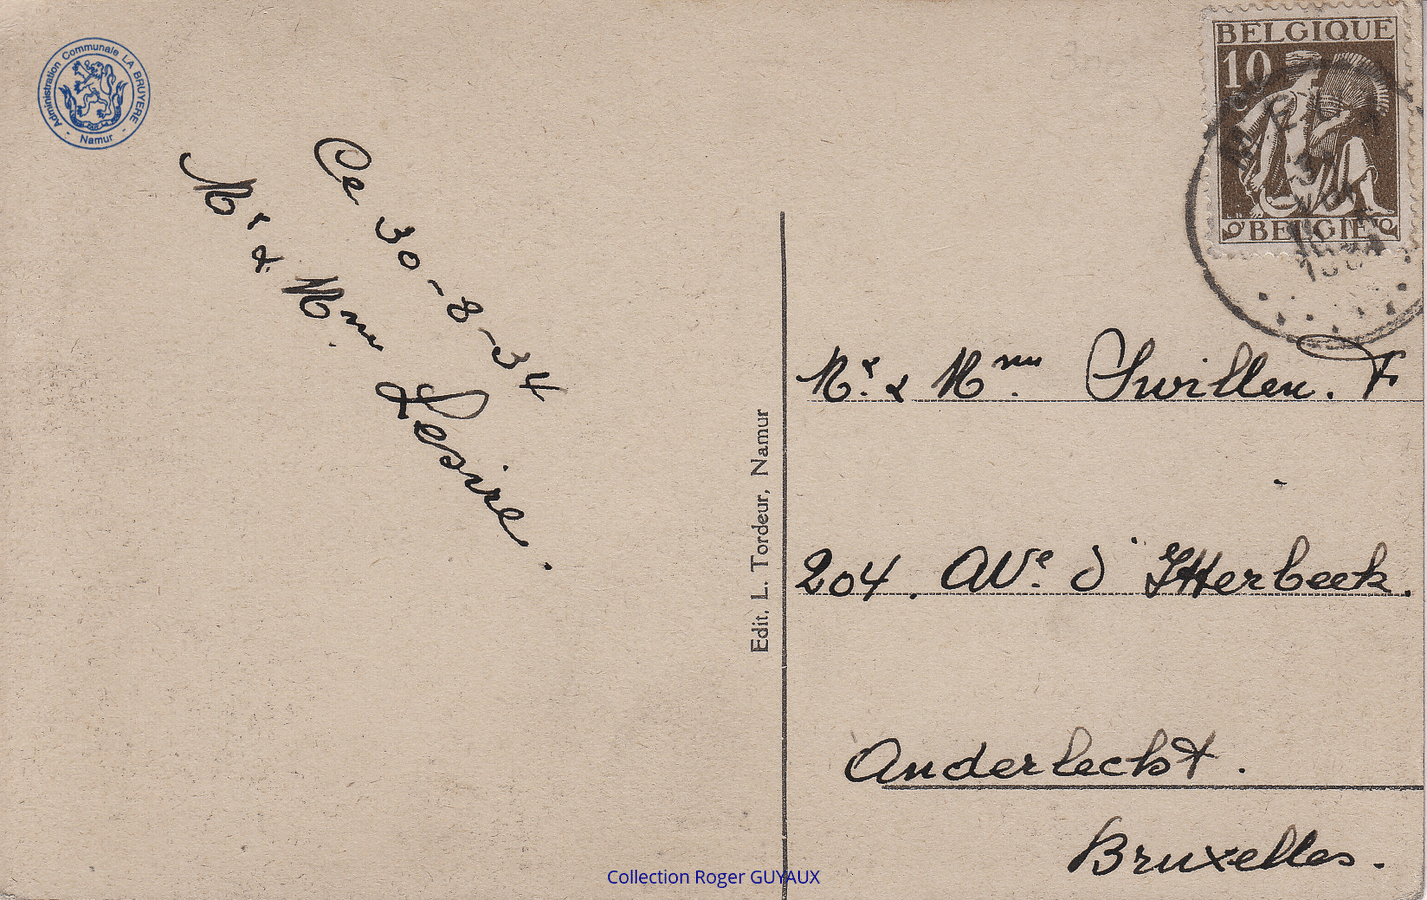 Administration Communale LA BRUYERE
- Namur -
Ce 30-8-34
Mr & Mme Lesire.
Edit. L. Tordeur, Namur
BELGIQUE
10
BELGIE
Mr. & Mme. Swillen. F
204. Ave. d'Itterbeek.
Anderlecht.
Bruxelles.
Collection Roger GUYAUX